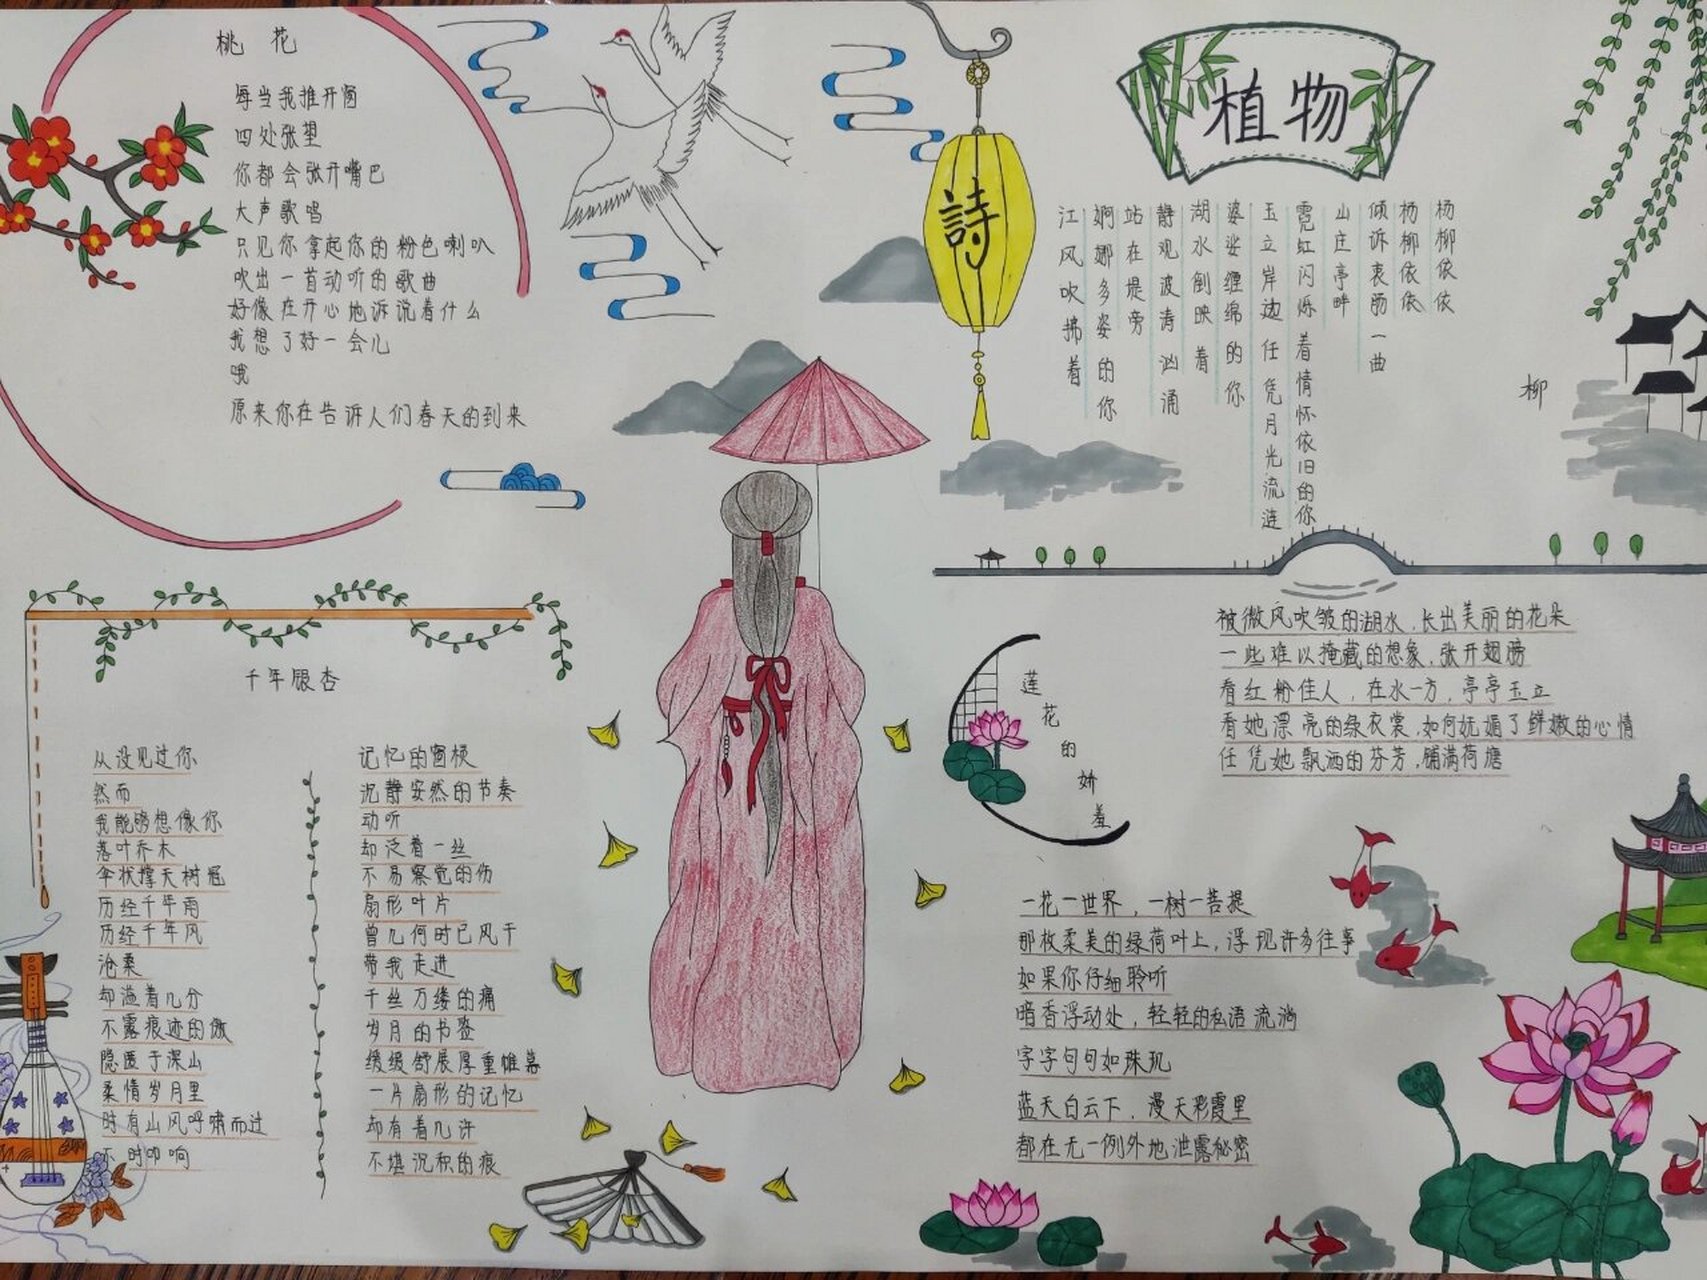 桃 花
每当我推开窗
四处张望
你都会张开嘴巴
大声歌唱
只见你拿起你的粉色喇叭
吹出一首动听的歌曲
好像在开心地诉说着什么
我想了好一会儿
哦
原来你在告诉人们春天的到来
詩
植物
柳
杨柳依依
杨柳依依
倾诉衷肠一曲
山庄亭畔
霓虹闪烁着情怀依旧的你
玉立岸边任凭月光流涟
婆娑缠绵的你
湖水倒映着
静观波涛汹涌
站在堤旁
婀娜多姿的你
江风吹拂着
千年银杏
从没见过你
然而
我能够想像你
落叶乔木
伞状撑天树冠
历经千年雨
历经千年风
沧桑
却溢着几分
不露痕迹的傲
隐匿于深山
柔情岁月里
时有山风呼啸而过
不时叩响
记忆的窗棂
沉静安然的节奏
动听
却泛着一丝
不易察觉的伤
扇形叶片
曾几何时已风干
带我走进
千丝万缕的痛
岁月的书签
缓缓舒展厚重帷幕
一片扇形的记忆
却有着几许
不堪沉积的痕
莲花的娇羞
被微风吹皱的湖水,长出美丽的花朵
一些难以掩藏的想象,张开翅膀
看红粉佳人,在水一方,亭亭玉立
看她漂亮的绿衣裳,如何妩媚了鲜嫩的心情
任凭她飘洒的芬芳,铺满荷塘
一花一世界,一树一菩提
那枚柔美的绿荷叶上,浮现许多往事
如果你仔细聆听
暗香浮动处,轻轻的私语流淌
字字句句如珠玑
蓝天白云下,漫天彩霞里
都在无一例外地泄露秘密